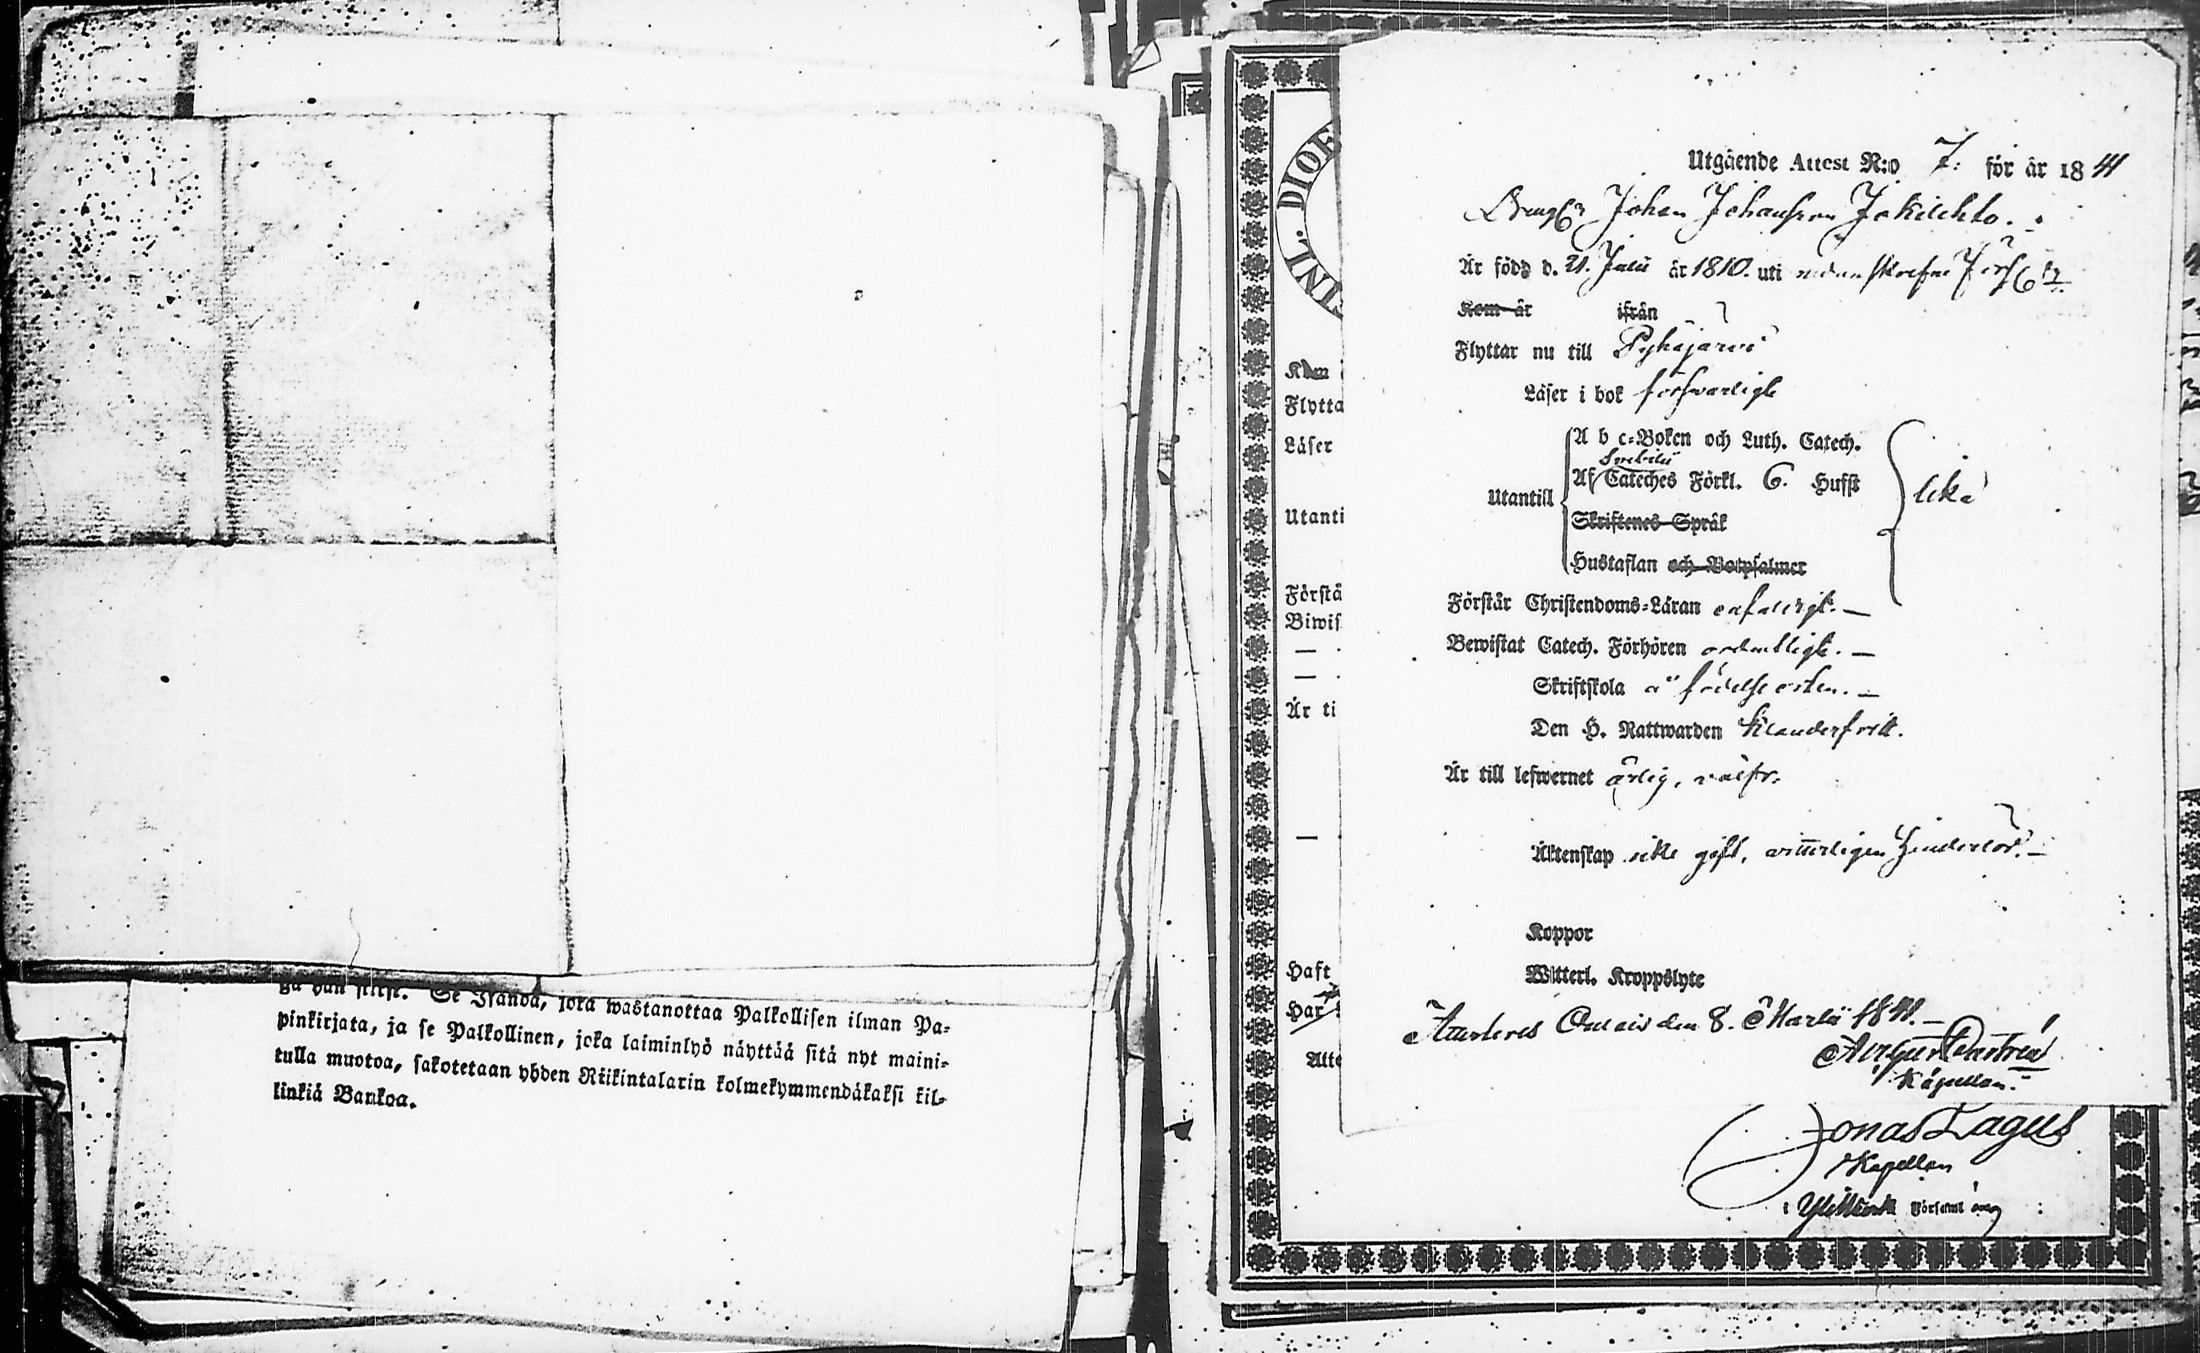 ga hän siirst. Se Isändä, joka wastanottaa Palkollisen ilman Pa=
pinkirjata, ja se Palkollinen, joka laiminlyö näyttää sitä nyt maini=
tulla muotoa, sakotetaan yhden Riikintalarin kolmekymmendäkaksi kil=
linkiä Bankoa.
INL. DIOE
Kom
Flytta
Läser
Utanti
Förstå
Biwis
—
—
Är ti
—
Haft
Har
Atte
Utgående Attest N:o 7. för år 1841
Johan Johansson Jokilehto.
Är född d. 21. Julii år 1810. uti nedanskrefne
Kom år ifrån
Flyttar nu till Pyhäjärvi
Läser i bok försvarligt
Utantill
A b c=Boken och Luth. Catech.
Svebilii
Af Cateches Förkl. 6. Hufst
lika
Skriftenes Språk
Hustaflan och Botpsalmer
Förstår Christendoms=Läran enfaldigt. —
Bewistat Catech. Förhören ordentligt. —
Skriftskola å födelseorten. —
Den H. Nattwarden klanderfritt.
Är till lefwernet ärlig, välfr.
Äktenskap icke gift, vitterligen hinderlös. —
Koppor
Witterl. Kroppslyte
den 8. Martii 1841. —
Kapellan.
Jonas Lagus
Kapellan
i Ylivieska Församling